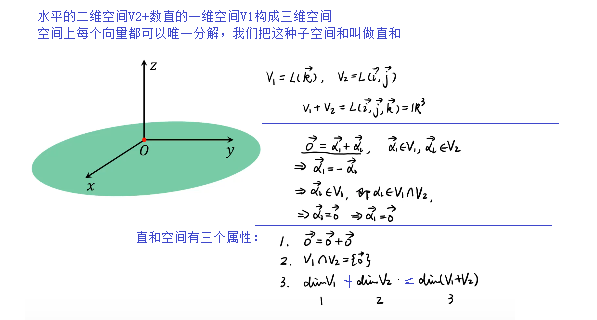 水平的二维空间V2+数直的一维空间V1构成三维空间
空间上每个向量都可以唯一分解，我们把这种子空间和叫做直和
z
O
y
x
V₁ = L(k⃗), V₂ = L(i⃗, j⃗)
V₁ + V₂ = L(i⃗, j⃗, k⃗) = ℝ³
0⃗ = α⃗₁ + α⃗₂, α⃗₁ ∈ V₁, α⃗₂ ∈ V₂
⇒ α⃗₁ = -α⃗₂
⇒ α⃗₂ ∈ V₁, 即 α₂ ∈ V₁ ∩ V₂,
⇒ α⃗₂ = 0⃗ ⇒ α⃗₁ = 0⃗
直和空间有三个属性：
1. 0⃗ = 0⃗ + 0⃗
2. V₁ ∩ V₂ = {0⃗}
3. dimV₁ + dimV₂ = dim(V₁+V₂)
1 2 3